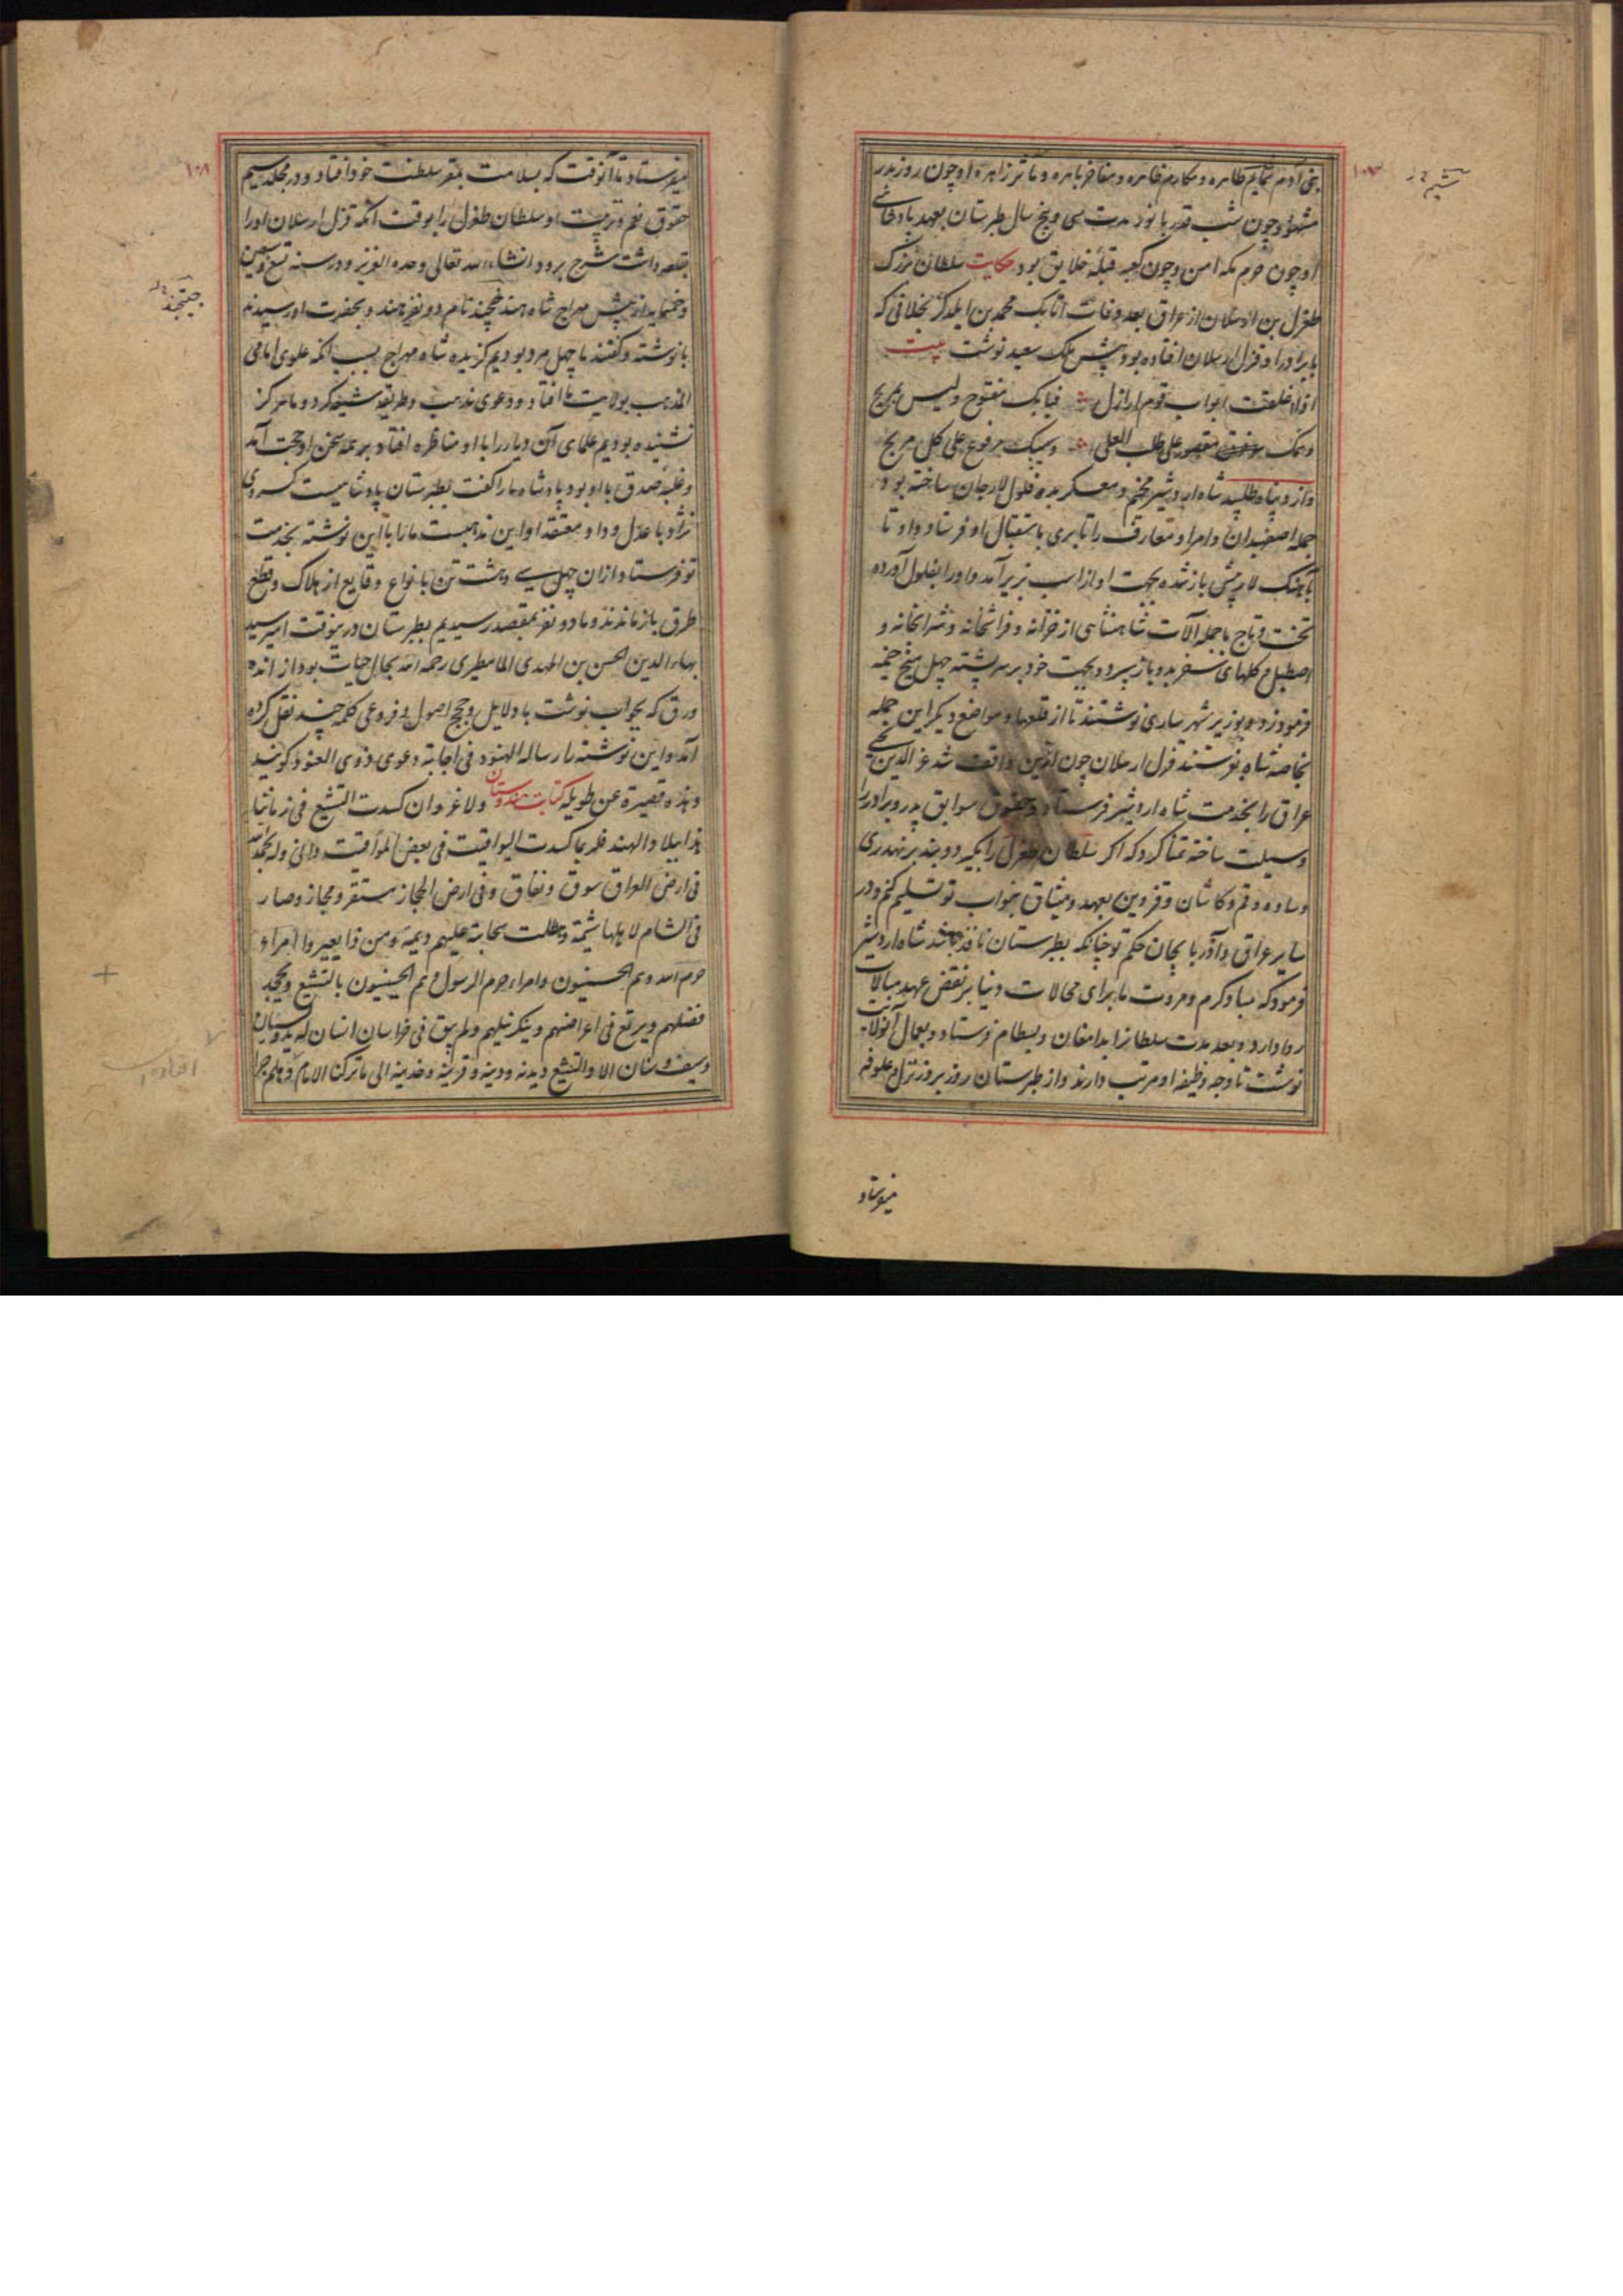 بنی آدم بمآثر ظاهره و مکارم طاهره و مفاخر باهره و مآثر زاهره او چون روز بدر
مشهور و چون شب قدر بانور مدت سی و پنج سال طبرستان بعهد پادشاهی
او چون حرم مکه امن و چون کعبه قبلهٔ خلایق بود حکایت سلطان بزرگ
طغرل بن ارسلان از عراق بعد وفات اتابک محمد بن ایلدگز بخلافی که
با برادر او قزل ارسلان افتاده بود پیش ملک سعید نوشت بیت
اذا غلقت ابواب قوم اراذل فبابک مفتوح ولیس بمرتج
وهمک مقصور علی طلب العلی وسیبک مرفوع علی کل مرتج
و از و پناه طلبید شاه اردشیر مخیم و معسکر بده فلول لارجان ساخته بود
جمله اصفهبدان و امرا و معارف را تا بری باستقبال او فرستاد و او تا
لار پیش باز شده بجهت او از اسب بزیر آمد و او را بفلول آورده
تخت و تاج با جمله آلات شاهنشاهی از خزانه و فراشخانه و شرابخانه و
اصطبل و کلهای سفر بدو باز سپرد و بجهت خود بر سر پشته چهل پنج خیمه
فرمود زد و بوزیر شهر ساری نوشتند تا از قلعها و مواضع دیگر این جمله
بخاصه شاه بفرستند قزل ارسلان چون ازین واقف شد عز الدین
عراق را بخدمت شاه اردشیر فرستاد و حقوق سوابق پدر و برادر را
وسیلت ساخته تمنا کرد که اگر سلطان طغرل را بگیرد و بند بر نهد ری
و ساوه و قم و کاشان و قزوین بعهد و میثاق بنواب تو تسلیم کنم و در
سایر عراق و آذربایجان حکم تو چنانکه بطبرستان نافذ باشد شاه اردشیر
فرمود که مبادا کرم و مروت ما برای محالات دنیا بر نقض عهد مبالات
روا دارد و بعد مدت سلطانرا بدامغان و بسطام فرستاد و بعمال آنولایت
نوشت تا وجه وظیفه او مرتب دارند و از طبرستان روز بروز نزل و علوفه
میفرستاد
۱۰۷
میفرستاد تا آنوقت که بسلامت بمقر سلطنت خود افتاد و در مجلد سیم
حقوق نعم و تربیت او سلطان طغرل را بوقت آنکه قزل ارسلان او را
بقلعه داشت شرح برود انشاءالله تعالی وحده العزیز و در سنه تسع و تسعین
و خمسمایه از پیش مهراج شاه هند نام دو نفر هند و بحضرت او رسیدند
با نوشته و گفتند ما چهل مرد بودیم گزیده شاه مهراج بسبب آنکه علوی امامی
المذهب بولایت ما افتاد و دعوی مذهب و طریقه شیعه کرد و ما هرگز
نشنیده بودیم علمای آن دیار را با او مناظره افتاد بر همه سخن او حجت آمد
و غلبه صدق با او بود پادشاه ما را گفت بطبرستان پادشاهیست کسروی
نژاد با عدل و داد و معتقد او این مذهبست ما را با این نوشته بخدمت
تو فرستاد از آن چهل سی و هشت تن بانواع وقایع از هلاک و قطع
طرق باز ماندند و ما دو نفر بمقصد رسیدیم بطبرستان درینوقت امیر سید
بهاء الدین الحسن بن المهدی المامطیری رحمه الله بحال حیات بود از انده
ورق که بجواب نوشت با دلایل و حجج اصول و فروعی کلمه چند نقل کرده
آمد و این نوشته را رساله الهنود فی اجابة دعوی ذوی العنود گویند
و هذه قصیرة عن طویله کتابت هندوستان ولا غرو ان کسدت التشیع فی زماننا
هذا ببلاد الهند فلربما کسدت الیواقیت فی بعض المواقیت وله بحمد الله
فی ارض العراق سوق و نفاق و فی ارض الحجاز مستقر و مجاز و صار
فی الشام لاهلها شیمة و هطلت سحابته علیهم دیمة و من ذا یعیر وا امراء
حرم الله و هم الحسنیون و امراء حرم الرسول و هم الحسینیون بالتشیع و یجحد
فضلهم و یرتع فی اعراضهم و ینکر نیلهم و لم یبق فی خراسان انسان له ید و لسان
و سیف و سنان الا و التشیع دیدنه و دینه و قرینه و خدینه الی ما ترکنا الامام
۱۰۸